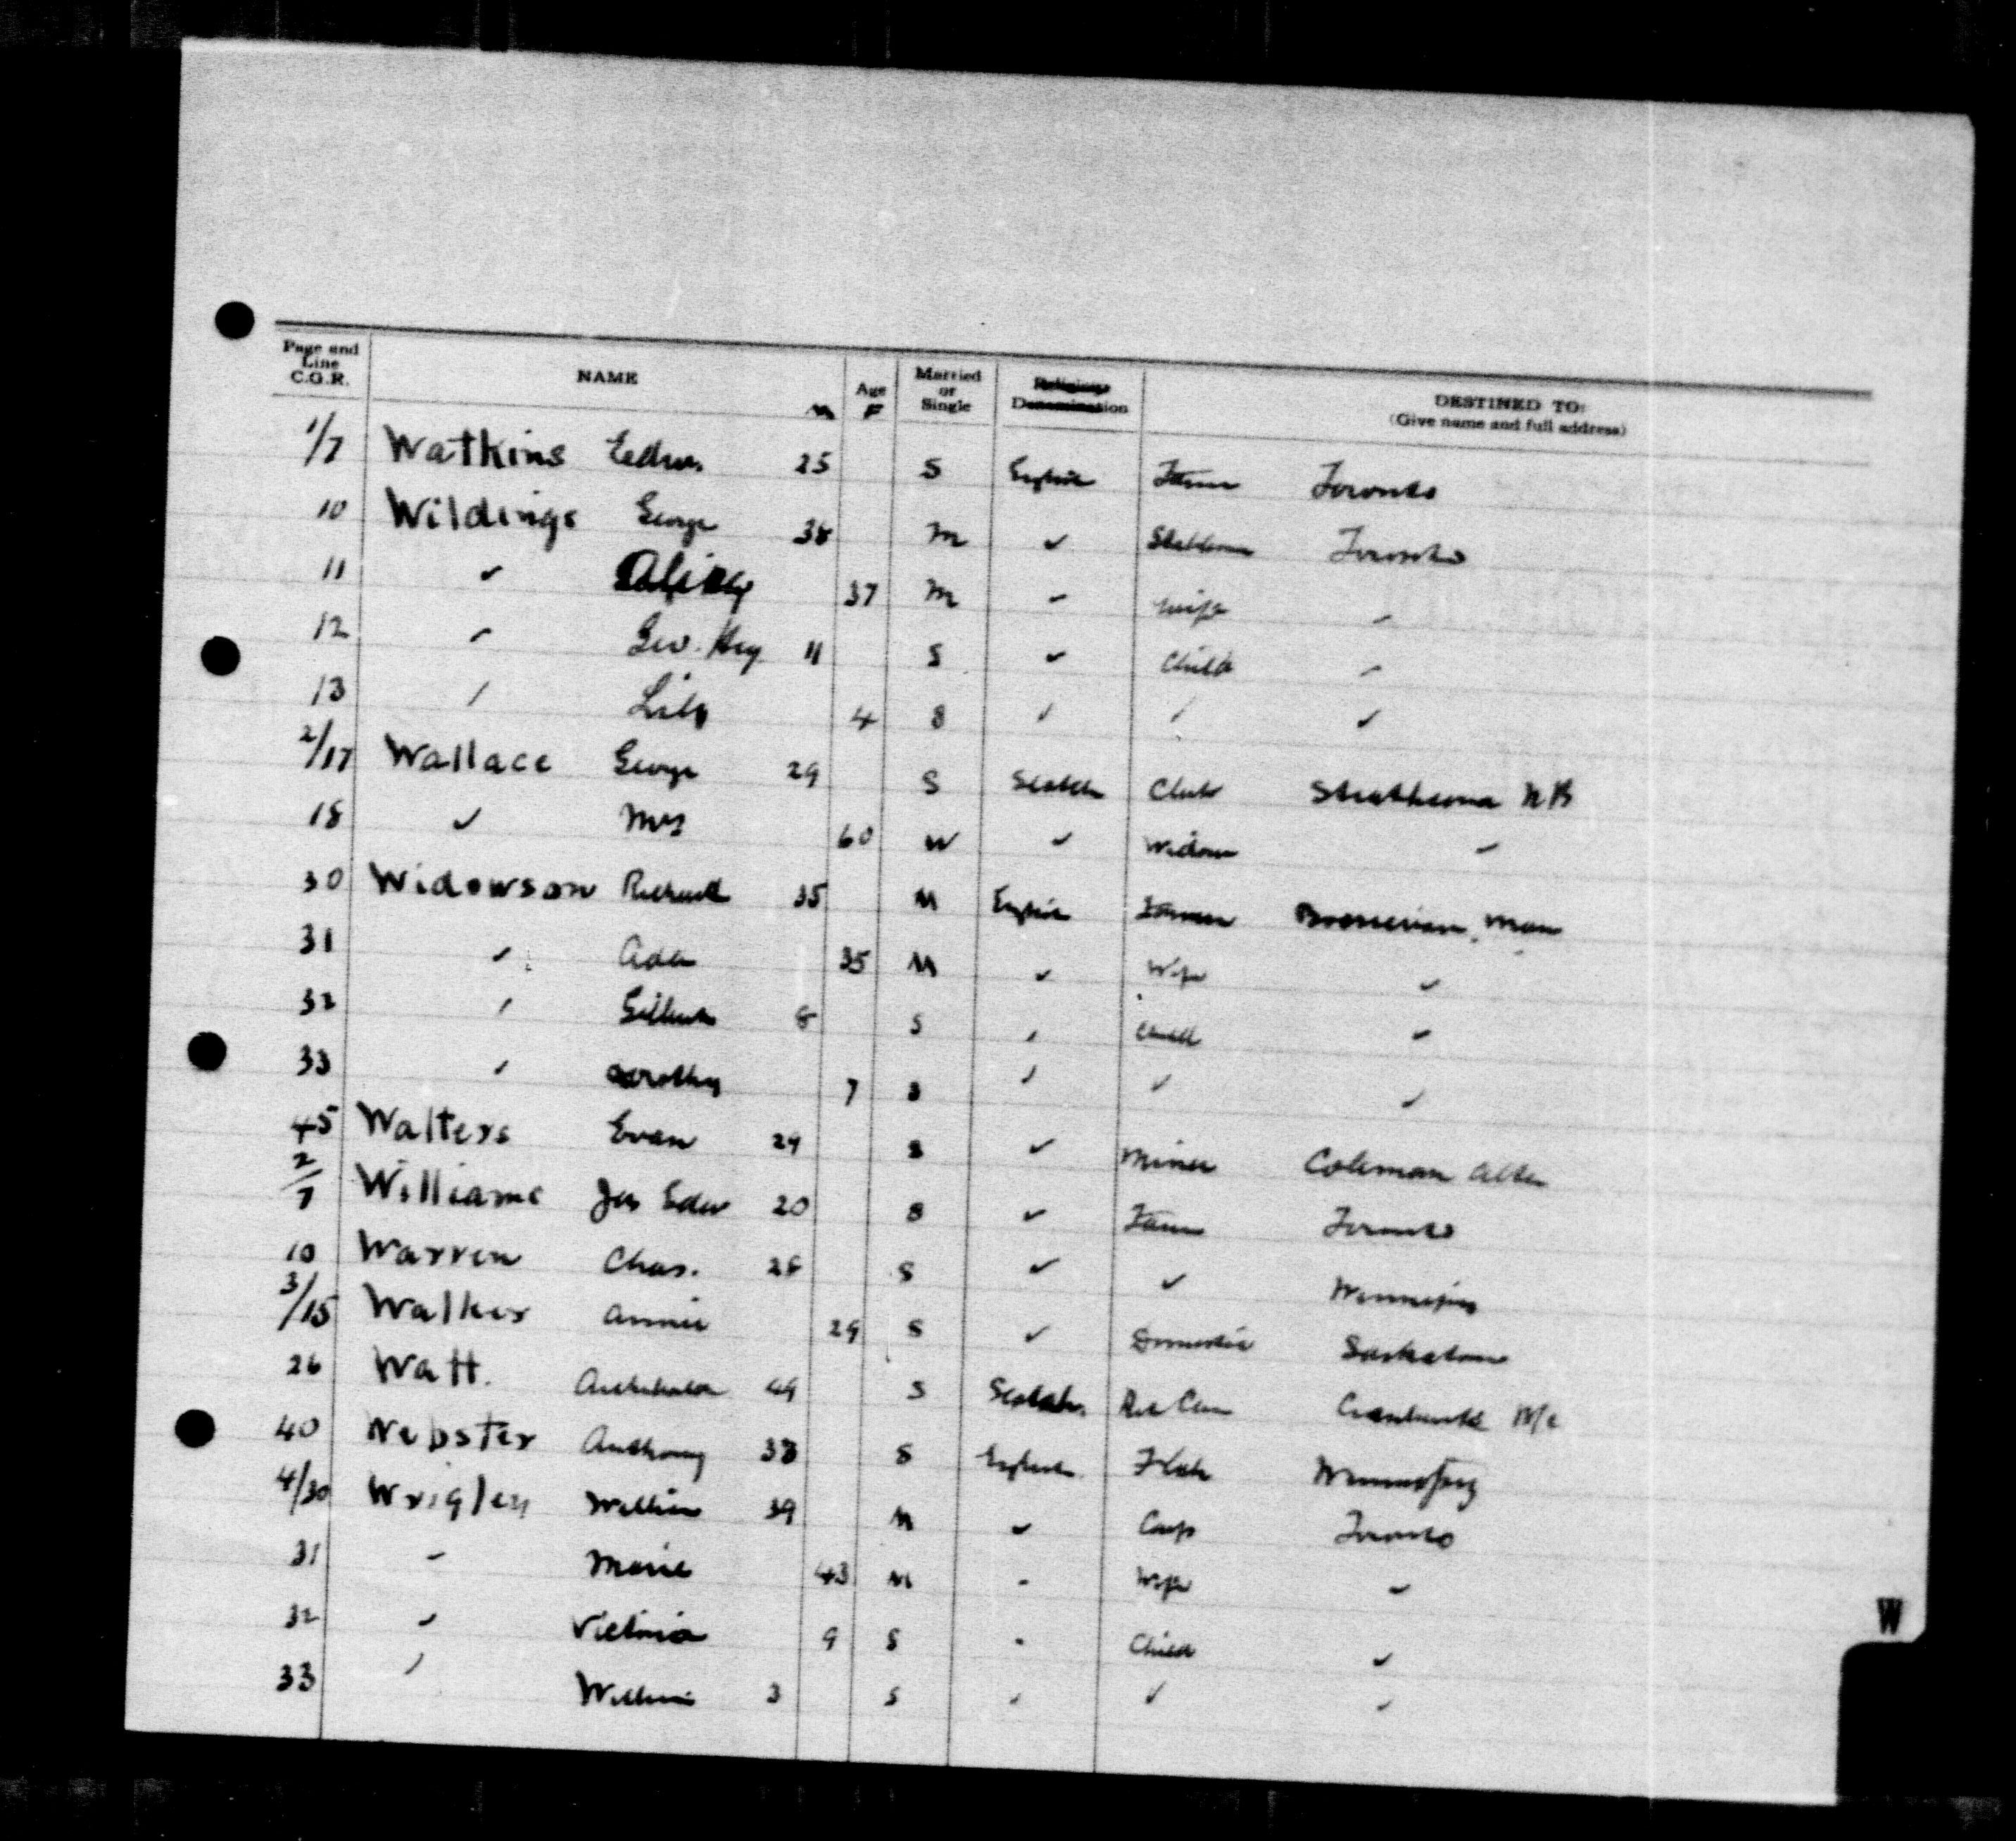 Page and Line C.G.R. NAME Age M F Married or Single Religious Denomination DESTINED TO: (Give name and full address)
1/7 Watkins Edw. 25 S English Farm Toronto
10 Wildings George 38 M ✓ Toronto
11 ✓ 37 M ✓ Wife ✓
12 ✓ Geo. Hy 11 S ✓ Child ✓
13 ✓ Lily 4 S ✓ ✓ ✓
2/17 Wallace George 29 S Scotch Clerk Strathcona
18 ✓ Mrs 60 W ✓ Widow ✓
30 Widowson Richard 35 M English Farmer Man
31 ✓ Ada 35 M ✓ Wife ✓
32 ✓ Gilbert 8 S ✓ Child ✓
33 ✓ Dorothy 7 S ✓ ✓ ✓
45 Walters Evan 29 S ✓ Miner Coleman Alta
2/7 Williams Jas Edw 20 S ✓ Farm Toronto
10 Warren Chas. 28 S ✓ ✓ Winnipeg
3/15 Walker Annie 29 S ✓ Domestic Saskatoon
26 Watt. Archibald 49 S Scotch Cranbrook B/C
40 Webster Anthony 38 S English Winnipeg
4/30 Wrigley William 39 M ✓ Carp Toronto
31 ✓ Marie 43 M ✓ Wife ✓
32 ✓ Victoria 9 S ✓ Child ✓
33 ✓ William 3 S ✓ ✓ ✓
W